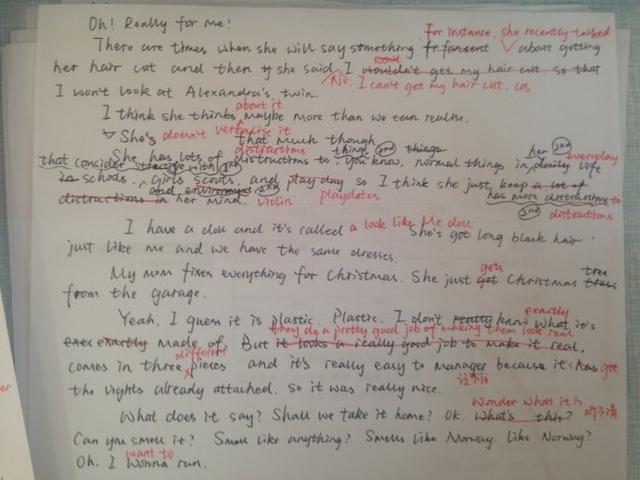 Oh! Really for me!
For instance, she recently talked
There are times when she will say something about getting
her hair cut and then she said I wouldn't get my hair cut. so that
No. I can't get my hair cut. cos
I won't look at Alexandra's twin.
about it
I think she thinks maybe more than we can realise.
She's doesn't verbalise it that much though
distractions things 2nd things her 2nd everyday
She has lots of distructions to. You know. normal things in daily life
that consider with 1st
in schools, girls scouts, and playday so I think she just keep a lot of
and 2nd has more distructions to
distructions in her mind. violin playdates 2nd distractions
I have a doll and it's called a look like Me doll She's got long black hair
just like me and we have the same dresses.
gets tree
My mom fixes everything for Christmas. She just got Christmas
from the garage.
exactly
Yeah, I guess it is plastic. Plastic. I don't really know what it's
they do a pretty good job of making them look real
exactly made of. But it looks a really good job to make it real.
different
comes in three pieces and it's really easy to manager because it's has got
the lights already attached. So it was really nice.
wonder what it is
What does it say? Shall we take it home? Ok. What's this? 听不清
Can you smell it? Smell like anything? Smells like Norway. Like Norway?
want to
Oh. I wonna run.